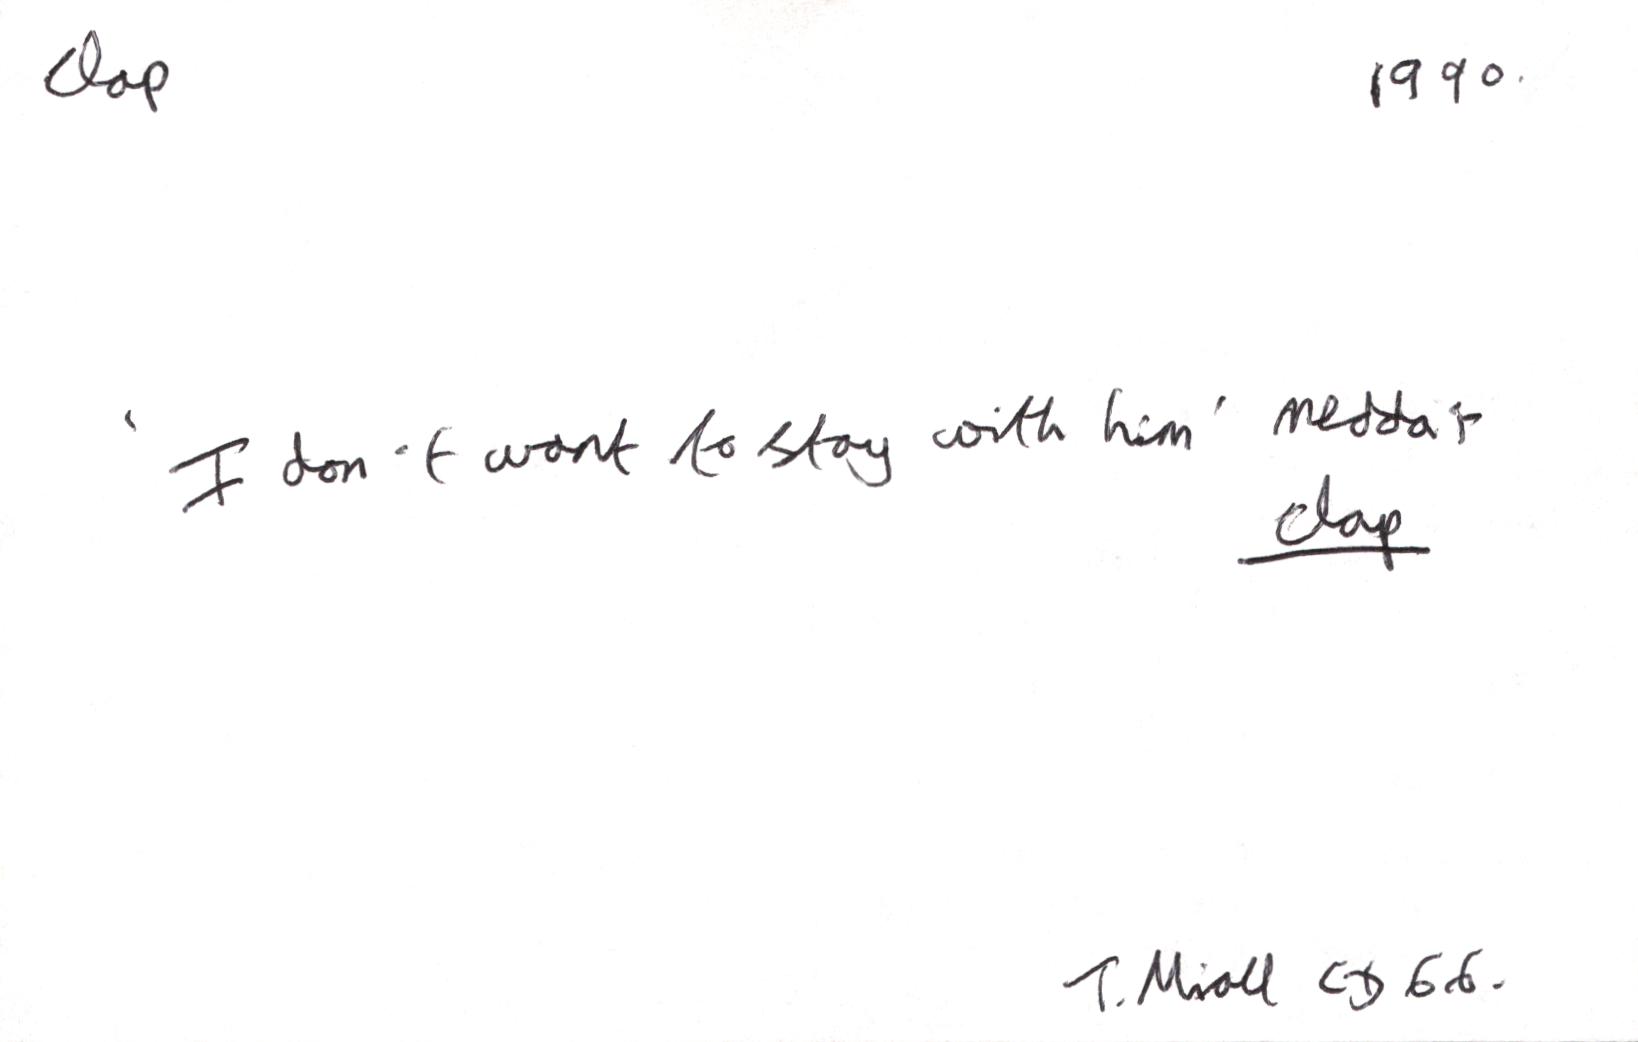 Clap 1990.
'I don't want to stay with him' Nedda's
clap
T. Miall CD 66.